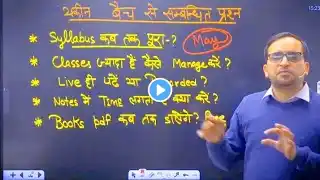 यकीन बैच से सम्बन्धित प्रश्न
* Syllabus कब तक पूरा-? May
* Classes ज्यादा है कैसे Manage करें ?
* Live ही पढ़ें या Recorded ?
* Notes में Time लगता क्या करें ?
* Books pdf कब तक डालेंगे ?